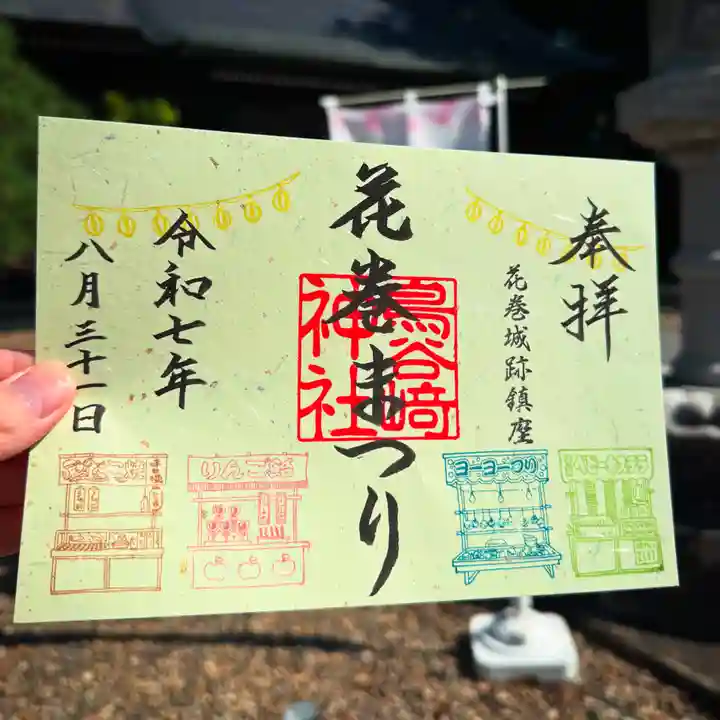 奉拝
花巻城跡鎮座
花巻まつり
鳥谷崎
神社
令和七年
八月三十一日
りんご飴
ヨーヨーつり
ベビーカステラ